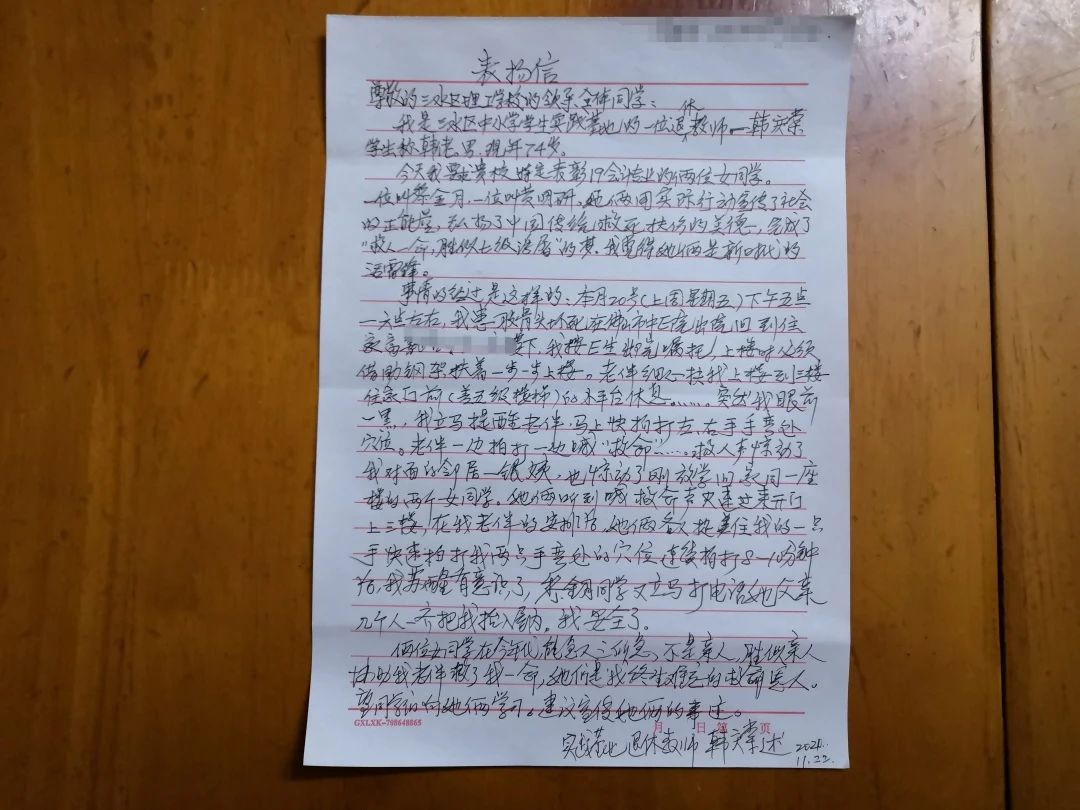 表扬信
尊敬的三水区理工学校的领导、全体同学：
我是三水区中小学学生实践基地的一位退休教师—韩庆棠
学生称韩老,男,现年74岁。
今天我要在贵校特定表彰19会计专业的俩位女同学。
一位叫蔡金月,一位叫黄明研,她俩用实际行动宣传了社会
的正能量,弘扬了中国传统救死扶伤的美德,完成了
"救人一命,胜似七级浮屠"的梦。我觉得她俩是新时代的
活雷锋。
事情的经过是这样的：本月20号(上周星期五)下午五点
—六点左右,我患股骨头坏死在佛山市中医院出院回到住
楼下,我按医生出院嘱托,上楼时必须
借助钢架扶着一步一步上楼。老伴细心扶我上楼到三楼
住家门前(差五级楼梯)的平台休息……突然我眼前
一黑,我立马提醒老伴马上快拍打左、右手手弯处
穴位。老伴一边拍打一边喊"救命"……救人声惊动了
我对面的邻居—银姨,也惊动了刚放学回家同一座
楼的两个女同学。她俩听到喊救命声火速过来开门
上三楼,在我老伴的安排后,她俩各人捉住我的一只
手快速拍打我两只手弯处的穴位连续拍打8-10分钟
后,我苏醒有意识了,蔡金月同学又立马打电话她父亲
几个人一齐把我抬入屋内。我安全了。
俩位女同学在今年代,能急人之所急,不是亲人,胜似亲人
协助我老伴救了我一命,她们是我终生难忘的救命恩人。
望同学们向她俩学习。建议宣传她俩的事迹。
GXLXK-798648865
月 日 第 页
实践基地 退休教师 韩庆棠述
11.22.